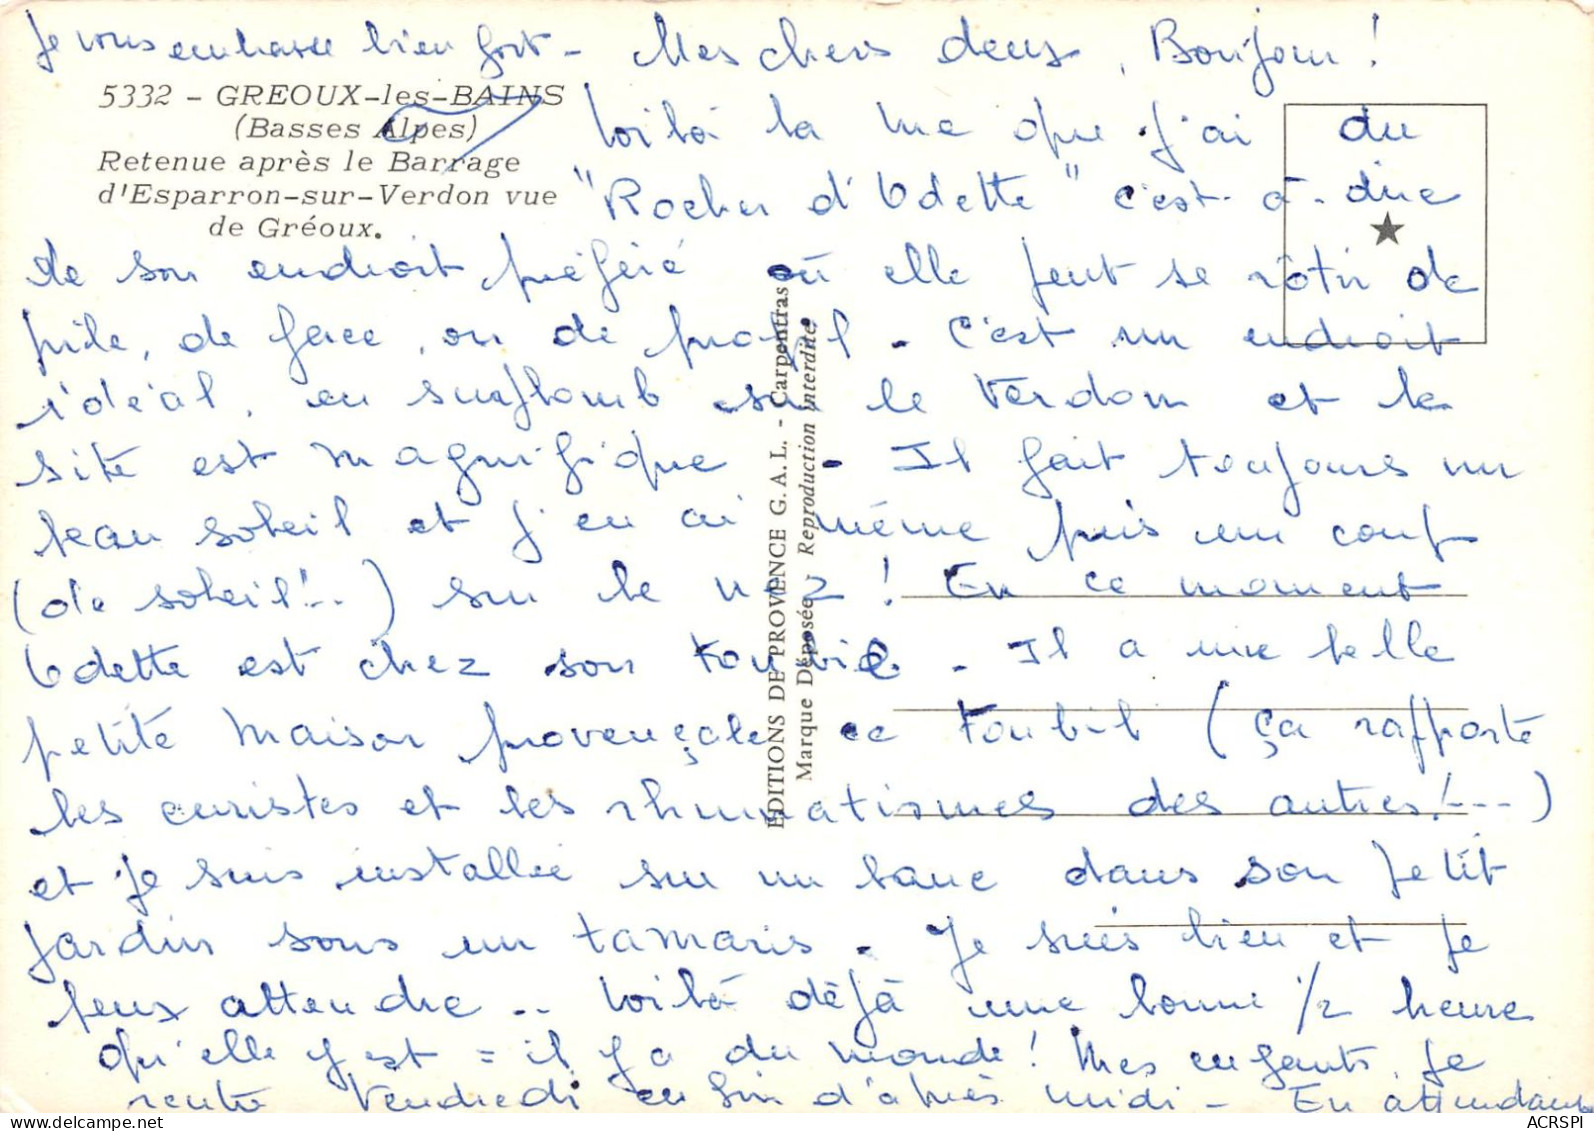 Mes chers deux, Bonjour !
5332 - GREOUX-les-BAINS
(Basses Alpes)
Retenue après le Barrage
d'Esparron-sur-Verdon vue
de Gréoux.
Voilà la vue que j'ai du
"Rocher d'Odette" c'est-à-dire
de son endroit préféré où elle peut se rôtir de
pile, de face, ou de profil - C'est un endroit
idéal, en surplomb sur le Verdon et le
site est magnifique - Il fait toujours un
beau soleil et j'en ai même pris un coup
(de soleil!..) sur le nez ! En ce moment
Odette est chez son Toubib - Il a une belle
petite maison provençale ce Toubib (ça rapporte
les curistes et les rhumatismes des autres!---)
et je suis installée sur un banc dans son petit
jardin sous un tamaris - Je suis bien et je
peux attendre .. Voilà déjà une bonne 1/2 heure
qu'elle y est = il y a du monde ! Mes enfants, je
rentre Vendredi en fin d'après midi - En attendant
Je vous embrasse bien fort -
EDITIONS DE PROVENCE G.A.L. - Carpentras
Marque Déposée Reproduction interdite
ACRSPI